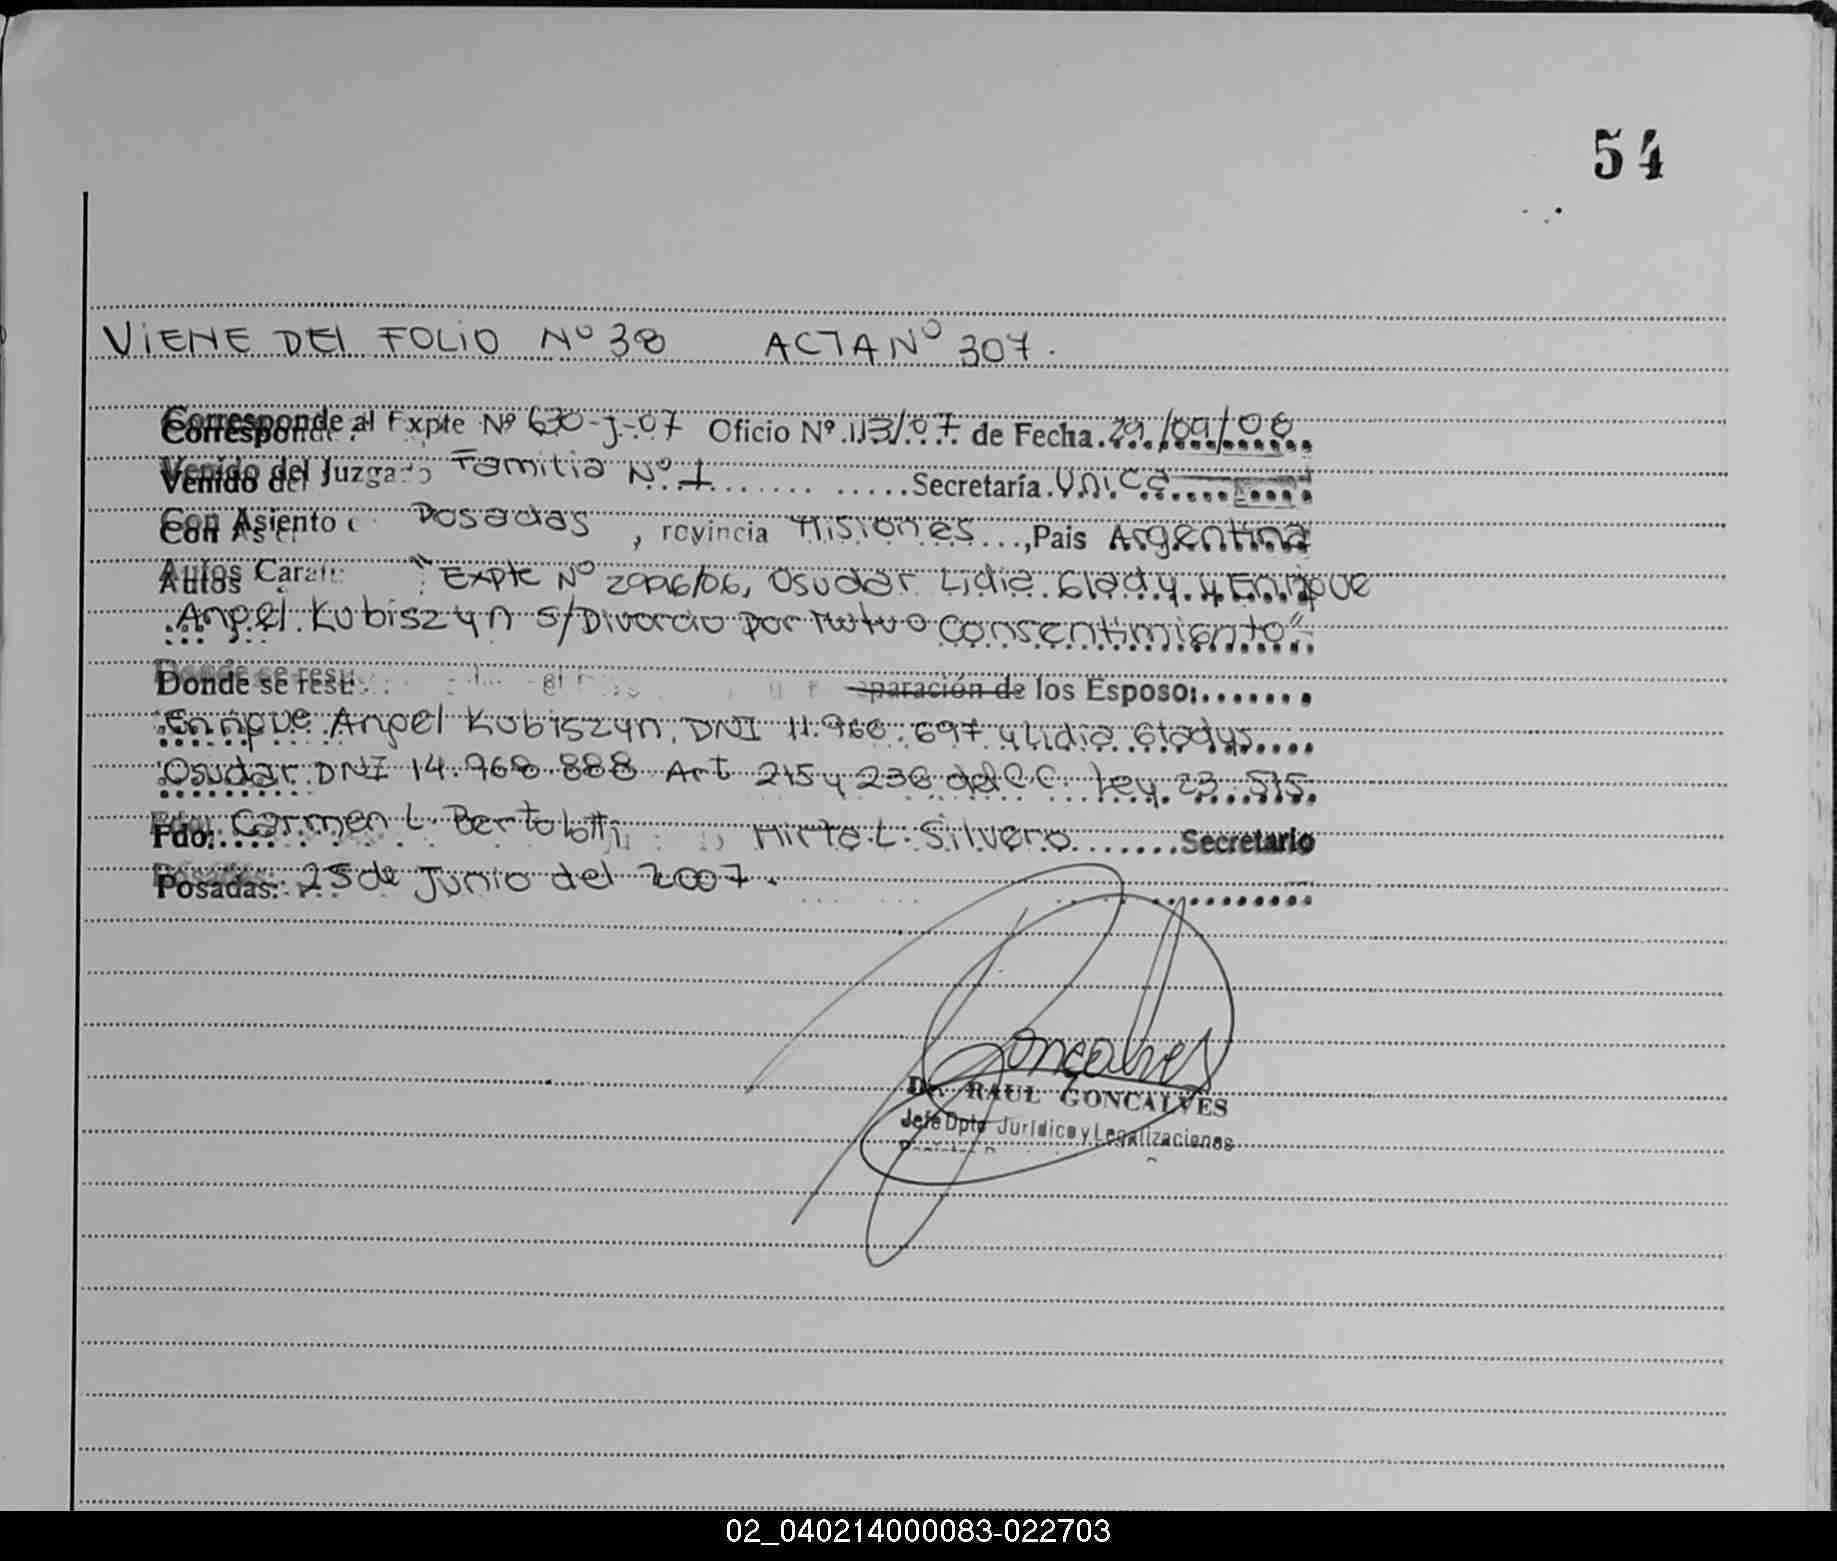 54
VIENE DEL FOLIO Nº 38 ACTA Nº 307.
Corresponde al Expte Nº 630-J-07 Oficio Nº 113/07 de Fecha 29/09/06
Venido del Juzgado Familia Nº 1 Secretaría Unica
Con Asiento Posadas, rovincia Misiones, Pais Argentina
Autos "Expte Nº 2996/06, Osudar Lidia Glady y Enrique
Angel Kubiszyn s/Divorcio por Mutuo Consentimiento"
Donde se el paración de los Esposo:
Enrique Angel Kubiszyn, DNI 11.966.697 y Lidia Gladys
Osudar DNI 14.968.888 Art 215 y 236 del C.C. Ley 23.515.
Fdo: Carmen L. Bertolotti Mirta L. Silvero Secretario
Posadas: 25 de Junio del 2007.
Goncalves
Dr. RAUL GONCALVES
Jefe Dpto Jurídico y Legalizaciones
02_040214000083-022703